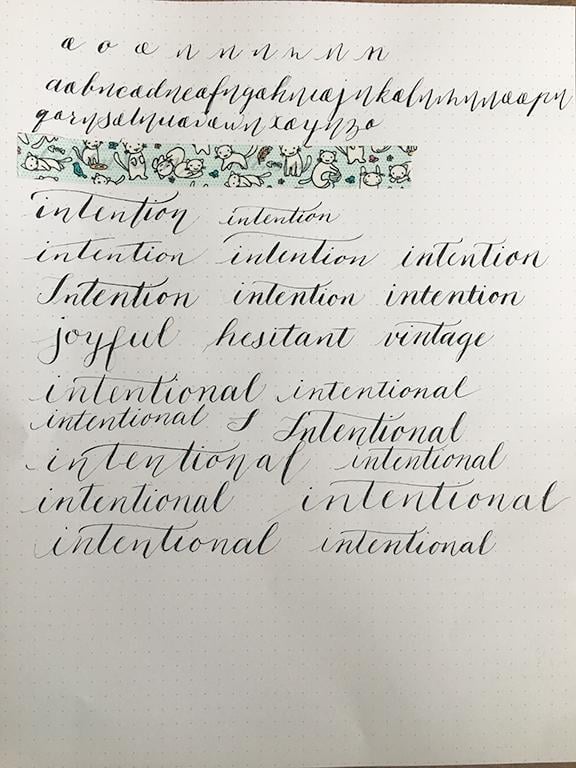 a o a n n n n n n
aabncadneafngahniajnkalnmnnaapn
qarnsatnuavawnxaynzo
intention intention
intention intention intention
Intention intention intention
joyful hesitant vintage
intentional intentional
intentional I Intentional
intentional intentional
intentional intentional
intentional intentional